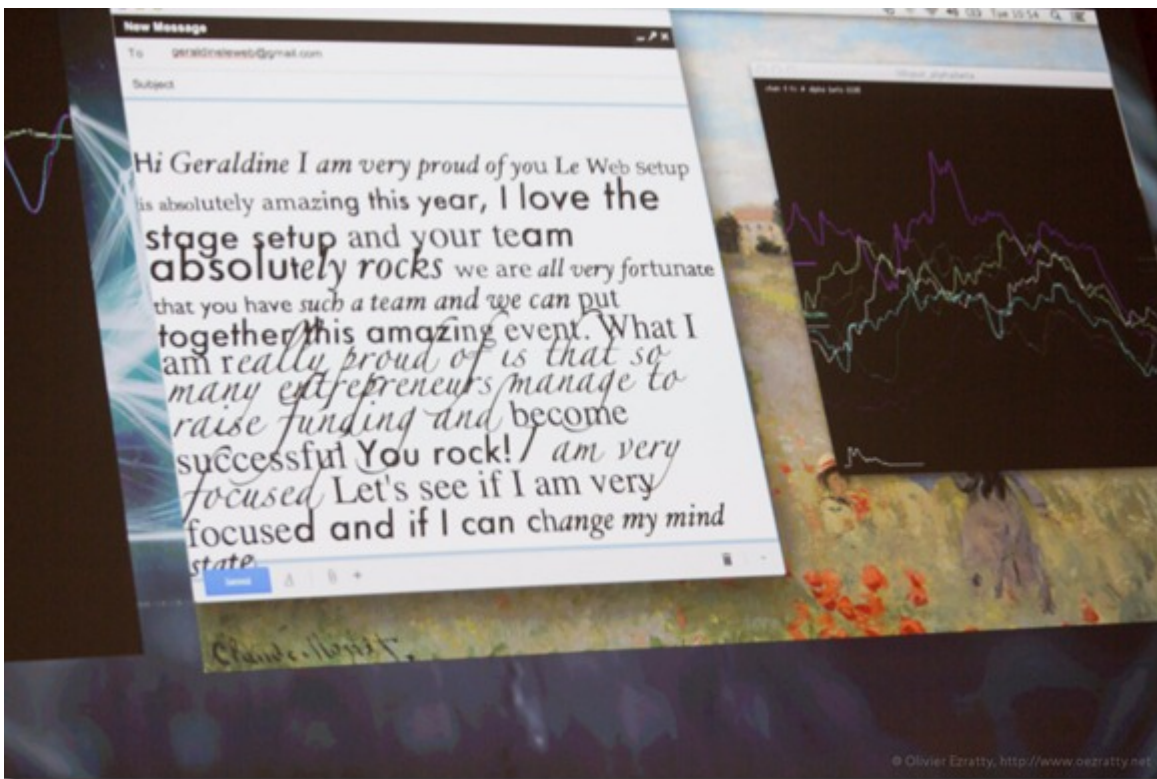 New Message
Tue 10:54
To geraldineleweb@gmail.com
Subject
Hi Geraldine I am very proud of you Le Web setup
is absolutely amazing this year, I love the
stage setup and your team
absolutely rocks we are all very fortunate
that you have such a team and we can put
together this amazing event. What I
am really proud of is that so
many entrepreneurs manage to
raise funding and become
successful You rock! I am very
focused Let's see if I am very
focused and if I can change my mind
state
Send
Claude Monet
© Olivier Ezratty, http://www.oezratty.net